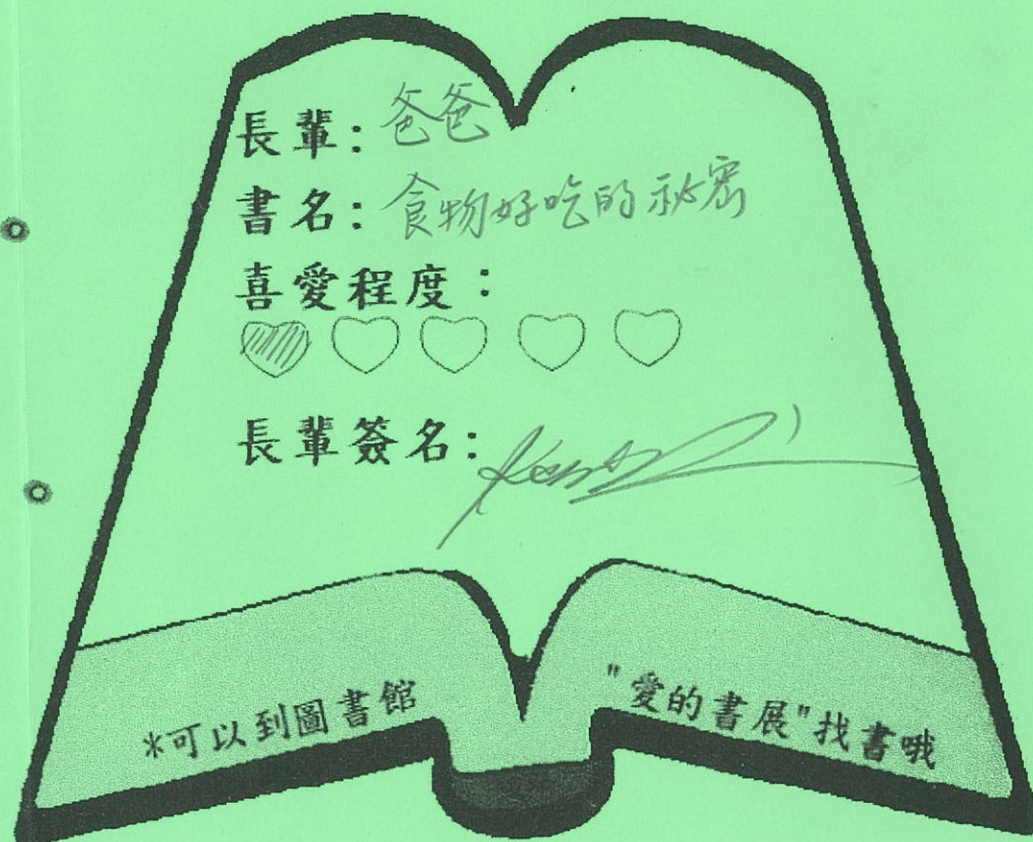 長輩：爸爸
書名：食物好吃的祕密
喜愛程度：
長輩簽名：
*可以到圖書館 "愛的書展"找書哦